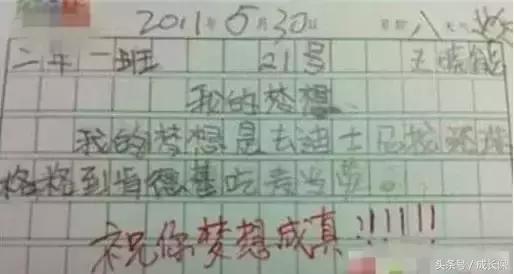 2011年5月30日 星期八 天气
二年一班 21号 王
我的梦想
我的梦想是去迪士尼找还珠
格格到肯德基吃麦当劳。
祝你梦想成真!!!!!!
头条号/成长保